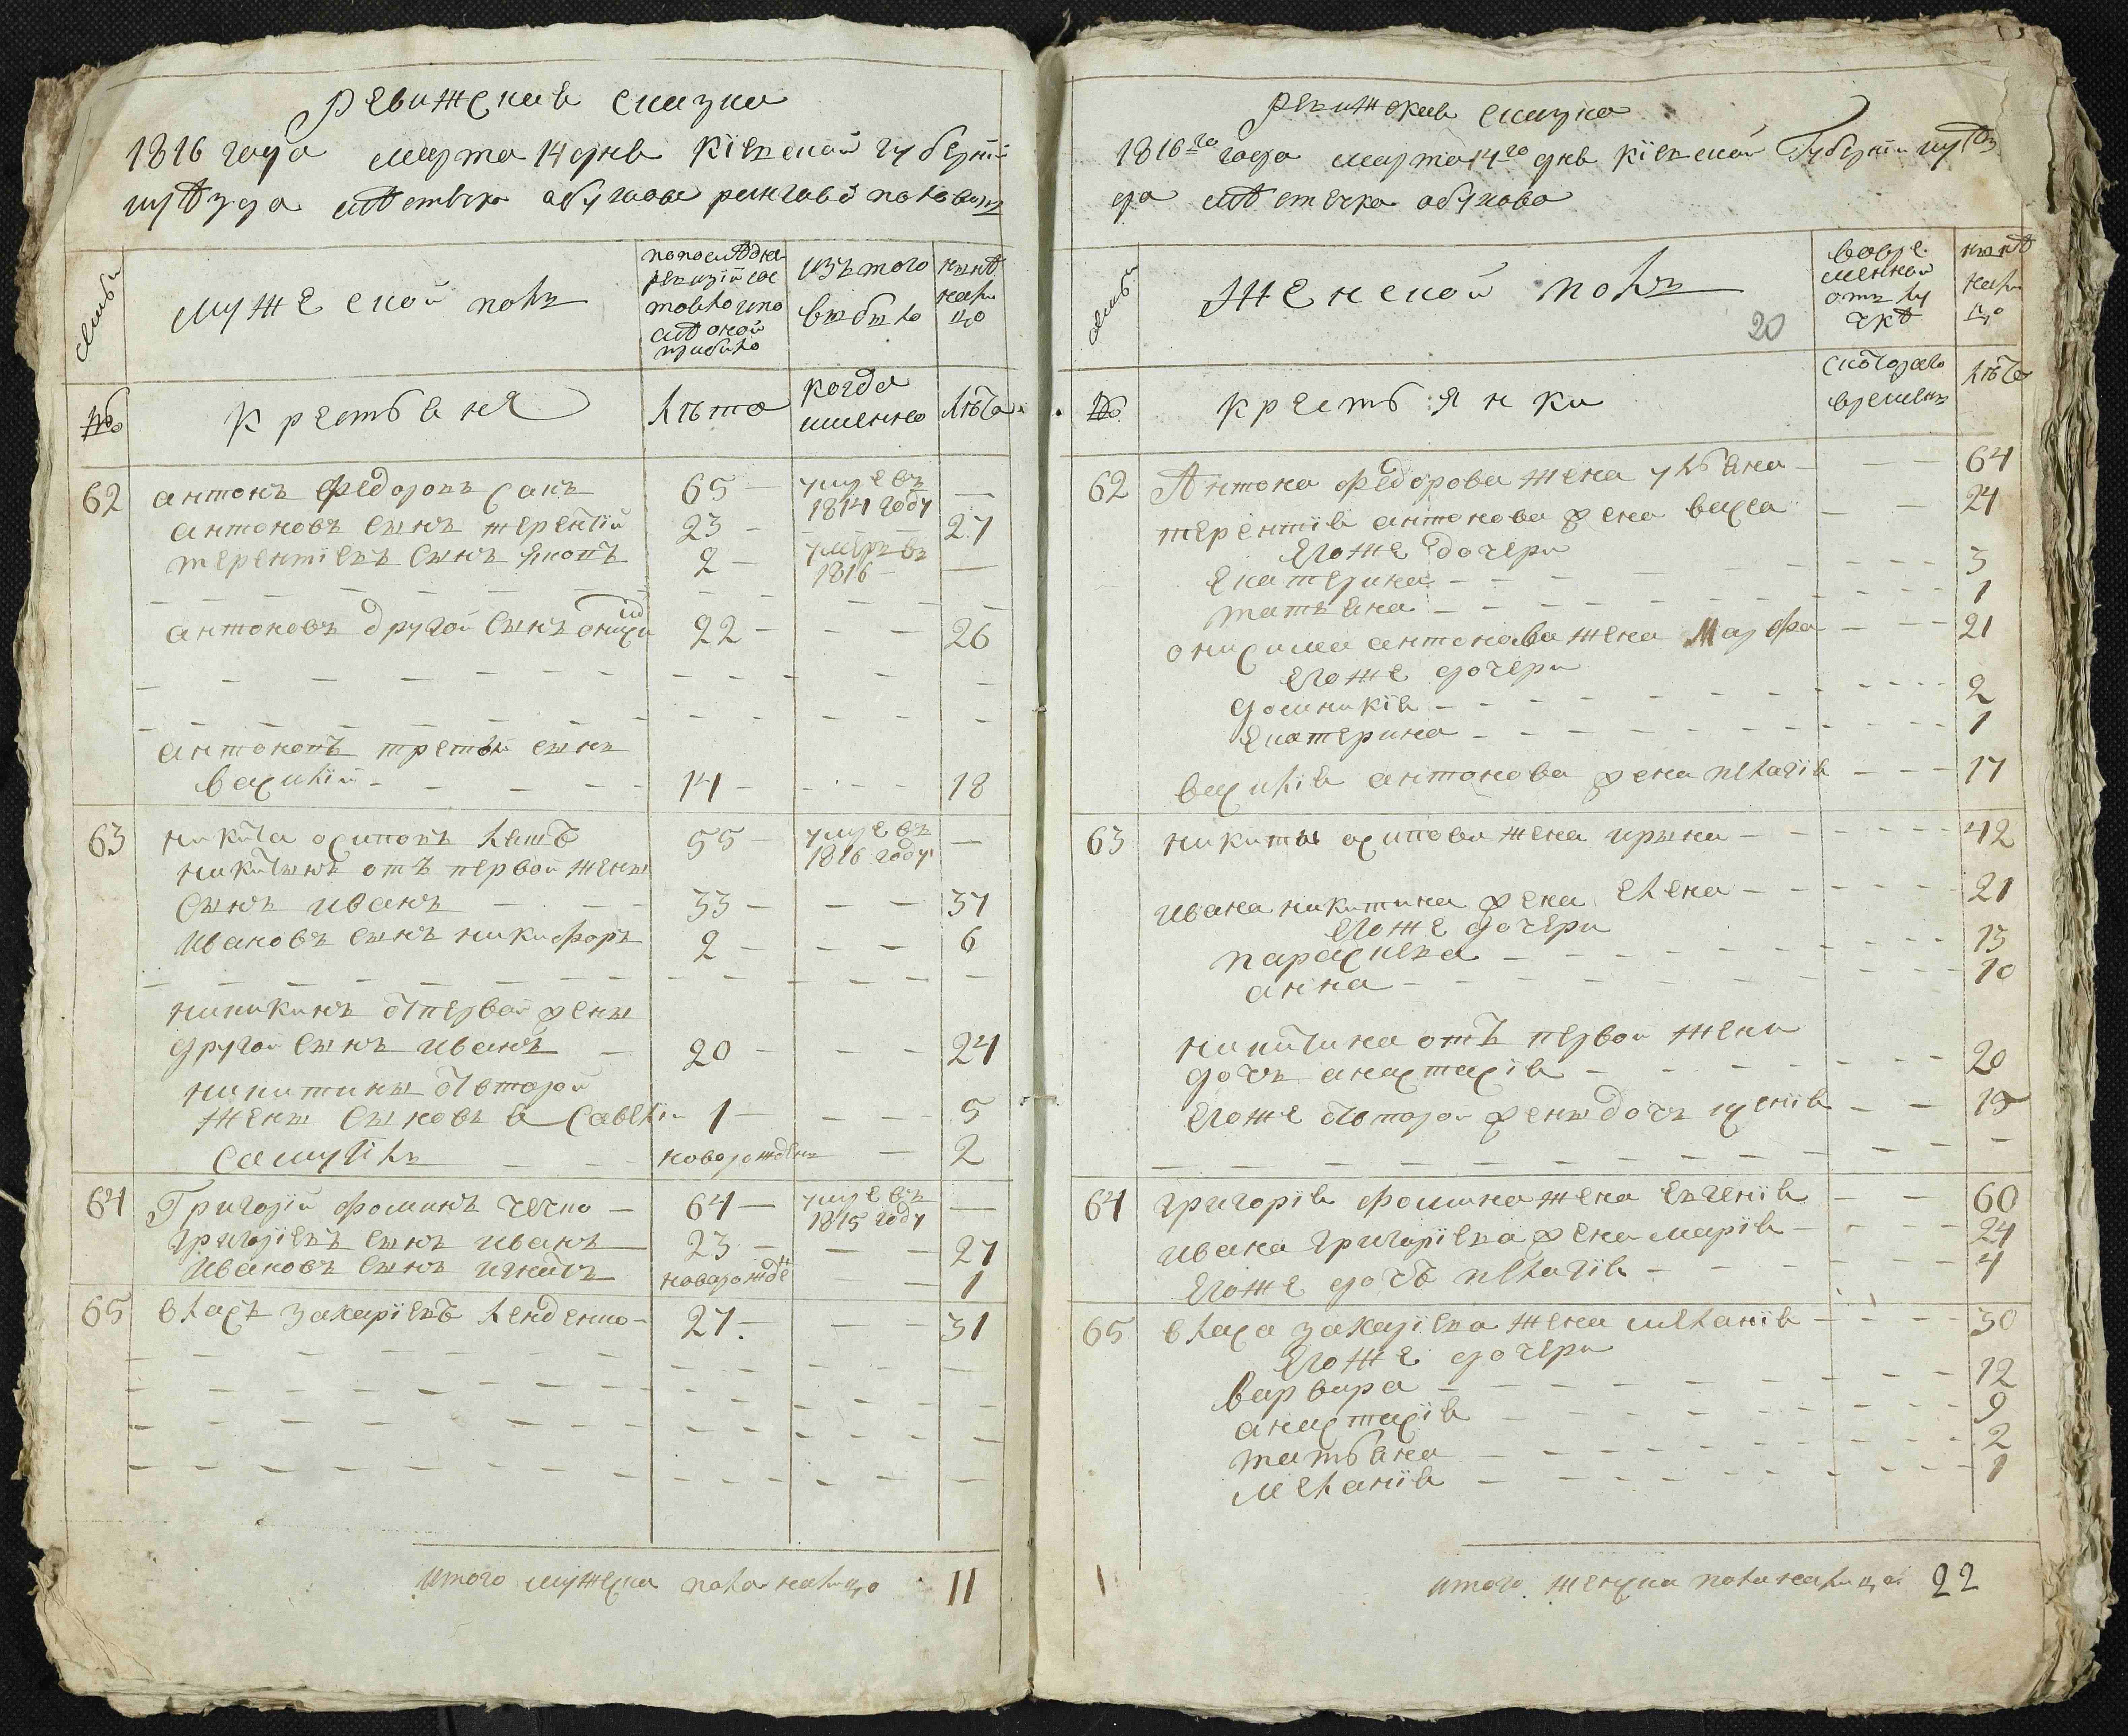 Ревижская сказка
1816 года марта 14 дня Кіевской губерніи
уѣзда мѣстечка обухова
семьи
мужеской полъ
попослѣдней
ревизіи сос
тояло и по
слѣ оной
прибыло
изътого
выбыло
нынѣ
нали
цо
№
крестьяня
лѣта
когда
имянно
лѣта
62 антонъ Федоровъ 65 умре въ 1814 году —
антоновъ сынъ терентій 23 — 27
терентіевъ сынъ яковъ 2 — умеръ въ 1816 —
антоновъ другой сынъ онисим 22 — — — 26
антоновъ третій сынъ
василій — 14 — 18
63 никита осиповъ 55 — умре въ 1816 году —
никитынъ отъ первой жены
сынъ иванъ — 33 — — — 37
ивановъ сынъ никифоръ 2 — — — 6
никитинъ отпервой жены
другой сынъ иванъ — 20 — — — 24
никитины отвторой
жены сыновья савелій 1 — — — 5
самуилъ — новорожденъ — 2
64 Григорій фоминъ — 64 — умре въ 1815 году —
григоріевъ сынъ иванъ 23 — — — 27
ивановъ сынъ игнатъ новорожде — 1
65 власъ захаріевъ — 27 — — — 31
итого мужеска пола налицо 11
Ревижская сказка
1816го года марта 14го дня кіевской Губерніи уѣз
да мѣстечка обухова
семьи
Женской полъ
20
вовре
менной
отлу
чкѣ
нынѣ
нали
цо
№
крестьянки
скотораго
времены
лѣта
62 Антона Федорова жена ульяна — — — 64
терентія антонова жена васса — — 24
егоже дочери
екатерина — — — 3
татьяна — — — 1
онисима антонова жена Марфа — — — 21
егоже дочери
домникія — — — 2
екатерина — — — 1
василія антонова жена пелагія — — — 17
63 никиты осипова жена ирына — — — 42
ивана никитина жена елена — — — 21
егоже дочери
параскева — — — 13
анна — — — 10
никитина отъ первой жены
дочь анастасія — — — 20
егоже отвторой жены дочь ксенія — — 15
64 григорія фомина жена евгенія — — 60
ивана григоріева жена марія — — — 24
егоже дочь пелагія — — — 4
65 власа захаріева жена меланія — — — 30
егоже дочери
варвара — — — 12
анастасія — — — 9
татьяна — — — 2
меланія — — — 1
итого женска пола налицо 22